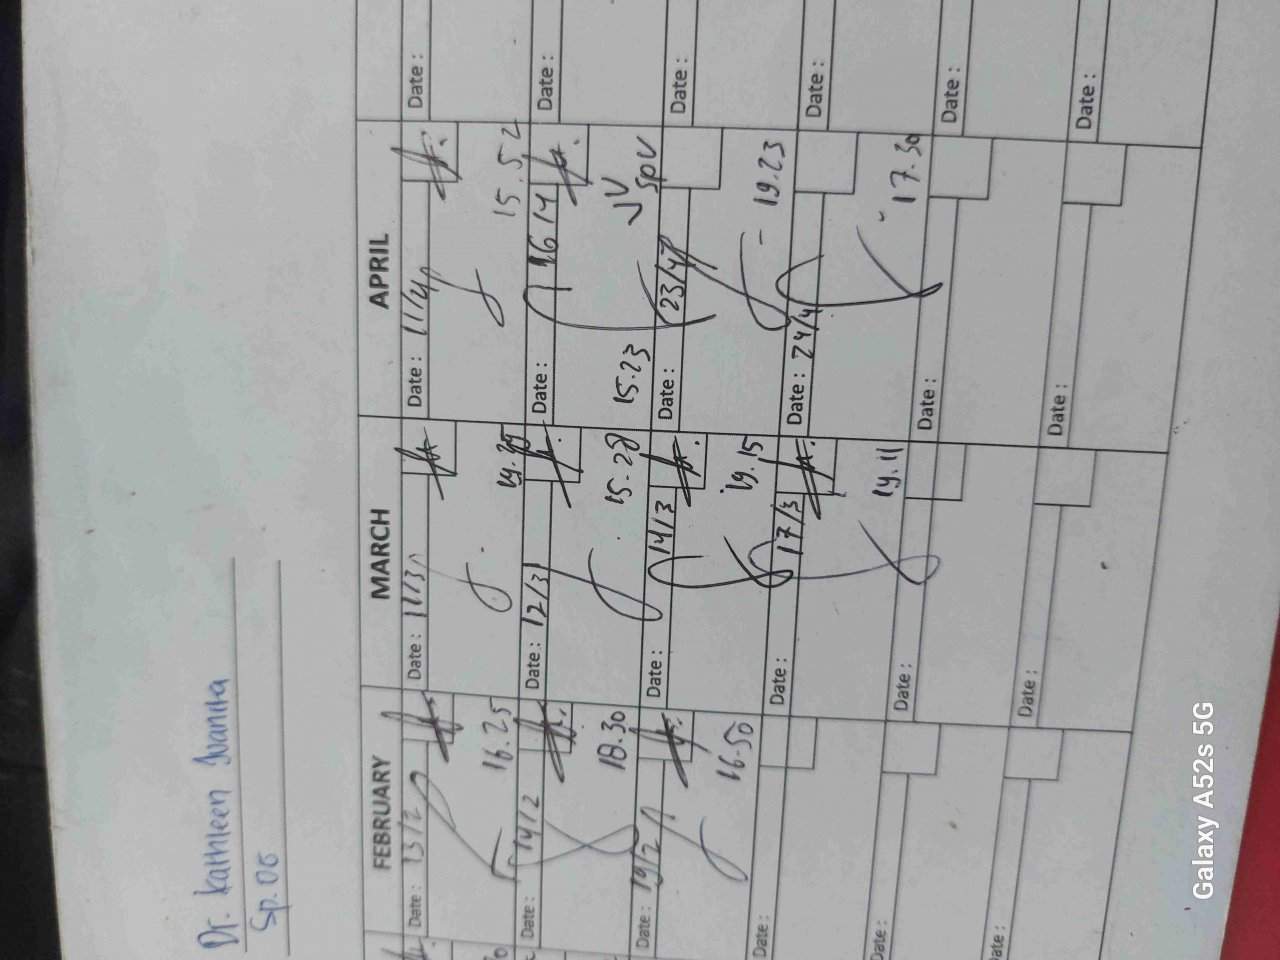 Dr. Kathleen Juanita
Sp. OG
FEBRUARY MARCH APRIL
Date: 13/2 Date: 11/3 Date: 11/4 Date:
16.25 19.35 15.52
Date: 14/2 Date: 12/3 Date: 16/4 Date:
18.30 15.28 15.23 JV SPV
Date: 19/2 Date: 14/3 Date: 23/4 Date:
16.50 19.15 19.23
Date: Date: 17/3 Date: 24/4 Date:
19.11 17.30
Date: Date: Date: Date:
Date: Date: Date: Date:
Galaxy A52s 5G